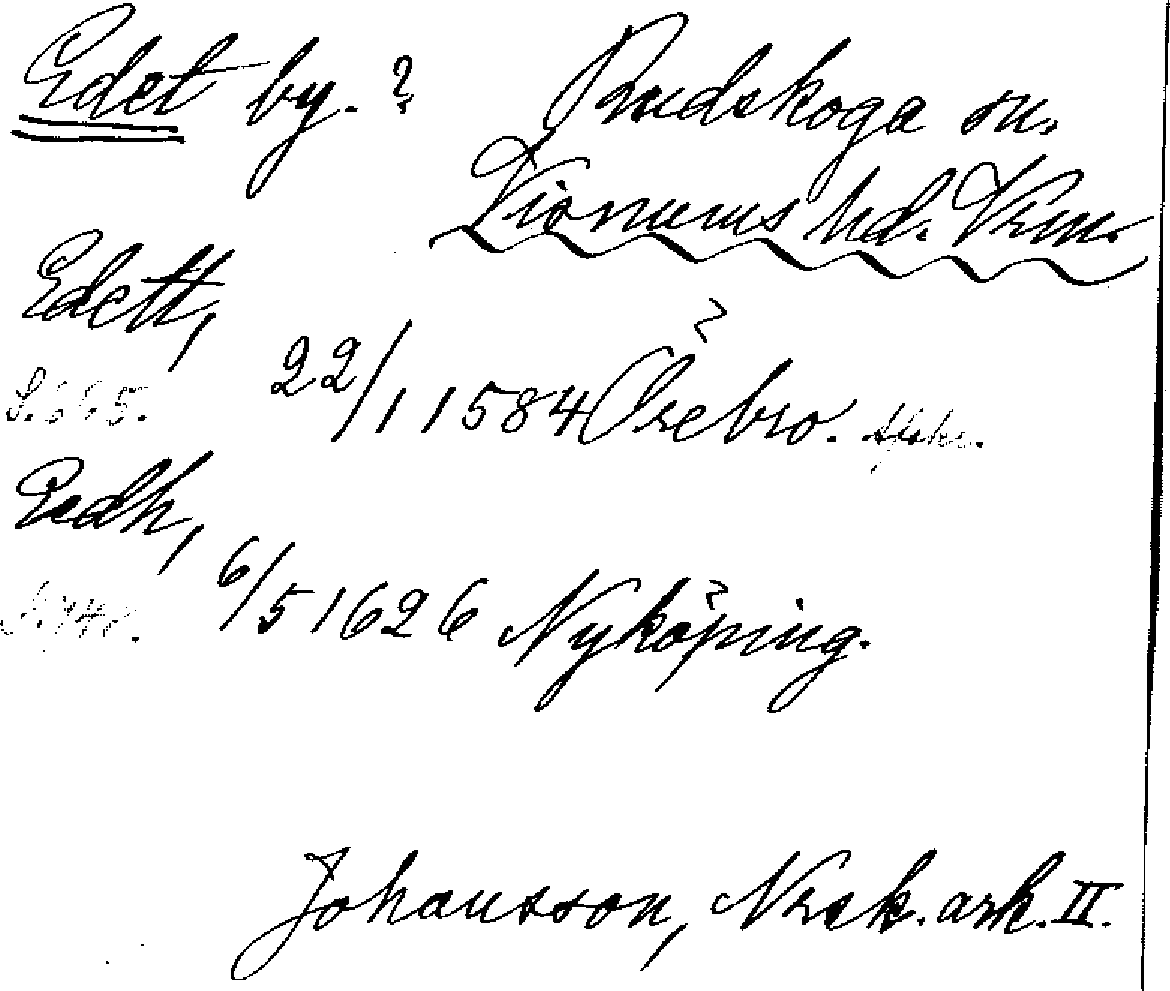 Edet by. ? Rudskoga sn.
Visnums hd. Vrm.
Edett,
S. 665. 22/1 1584 Örebro. Afskr.
Eedh,
6/5 1626 Nyköping.
Johansson, Nrsk. ark. II.